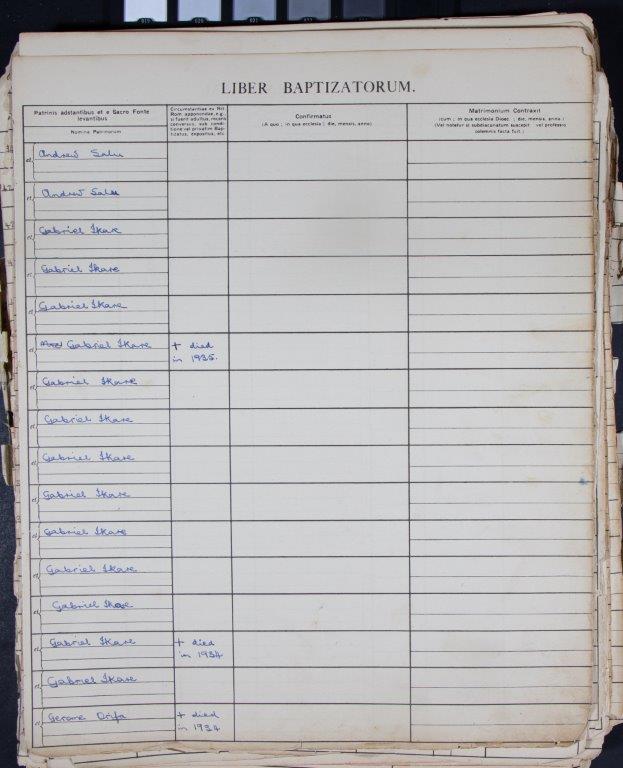 LIBER BAPTIZATORUM.
Patrinis adstantibus et e Sacro Fonte
levantibus
Nomina Patrinorum
Circumstantiae ex Rit.
Rom. apponendae, e.g.,
si fuerit adultus, recens
conversus, sub condi-
tione vel privatim Bap-
tizatus, expositus, etc.
Confirmatus
(A quo ; in qua ecclesia ; die, mensis, anno)
Matrimonium Contraxit
(cum ; in qua ecclesia Dioec. ; die, mensis, anno.)
(Vel notetur si subdiaconatum suscepit vel professio
solemnis facta fuit.)
et Andrew Salu
et Andrew Salu
et Gabriel Ikare
et Gabriel Ikare
et Gabriel Ikare
et Gabriel Ikare + died
in 1935.
et Gabriel Ikare
et Gabriel Ikare
et Gabriel Ikare
et Gabriel Ikare
et Gabriel Ikare
et Gabriel Ikare
et Gabriel Ikare
et Gabriel Ikare + died
in 1934
et Gabriel Ikare
et Gerome Orifa + died
in 1934